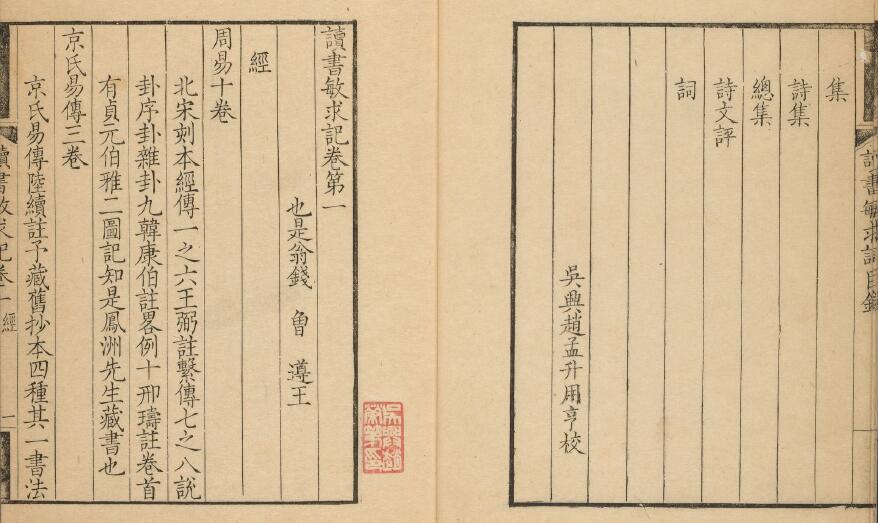 讀書敏求記目錄
集
詩集
總集
詩文評
詞
吳興趙孟升用亨校
讀書敏求記卷第一
也是翁錢 曾 遵王
經
周易十卷
北宋刻本經傳一之六王弼註繫傳七之八說
卦序卦雜卦九韓康伯註畧例十邢璹註卷首
有貞元伯雅二圖記知是鳳洲先生藏書也
京氏易傳三卷
京氏易傳陸續註予藏舊抄本四種其一書法
讀書敏求記卷一 經 一